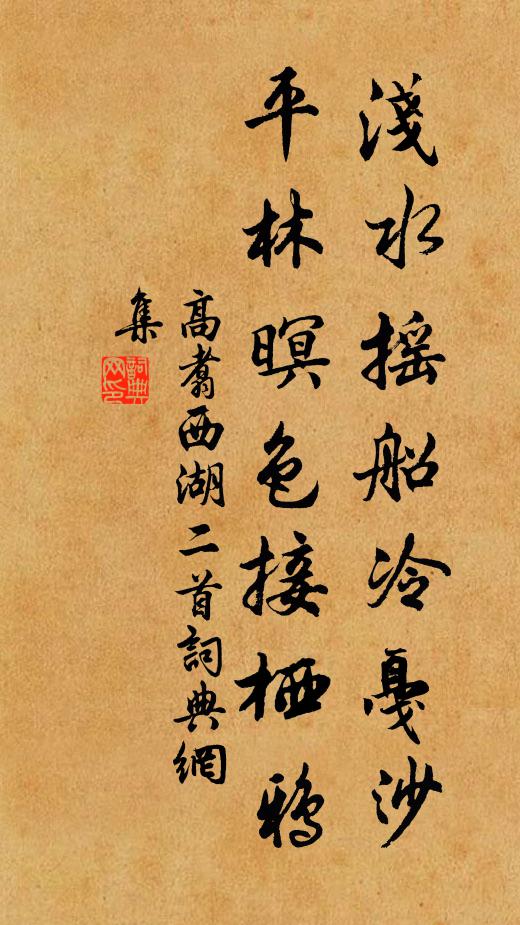 淺水摇船冷戛沙
平林暝色接栖鴉
高翥西湖二首詞典網
集
詞典
网印